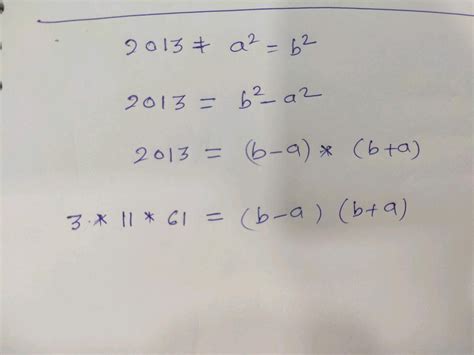 2013 + a² = b²
2013 = b² - a²
2013 = (b-a) * (b+a)
3 * 11 * 61 = (b-a) (b+a)